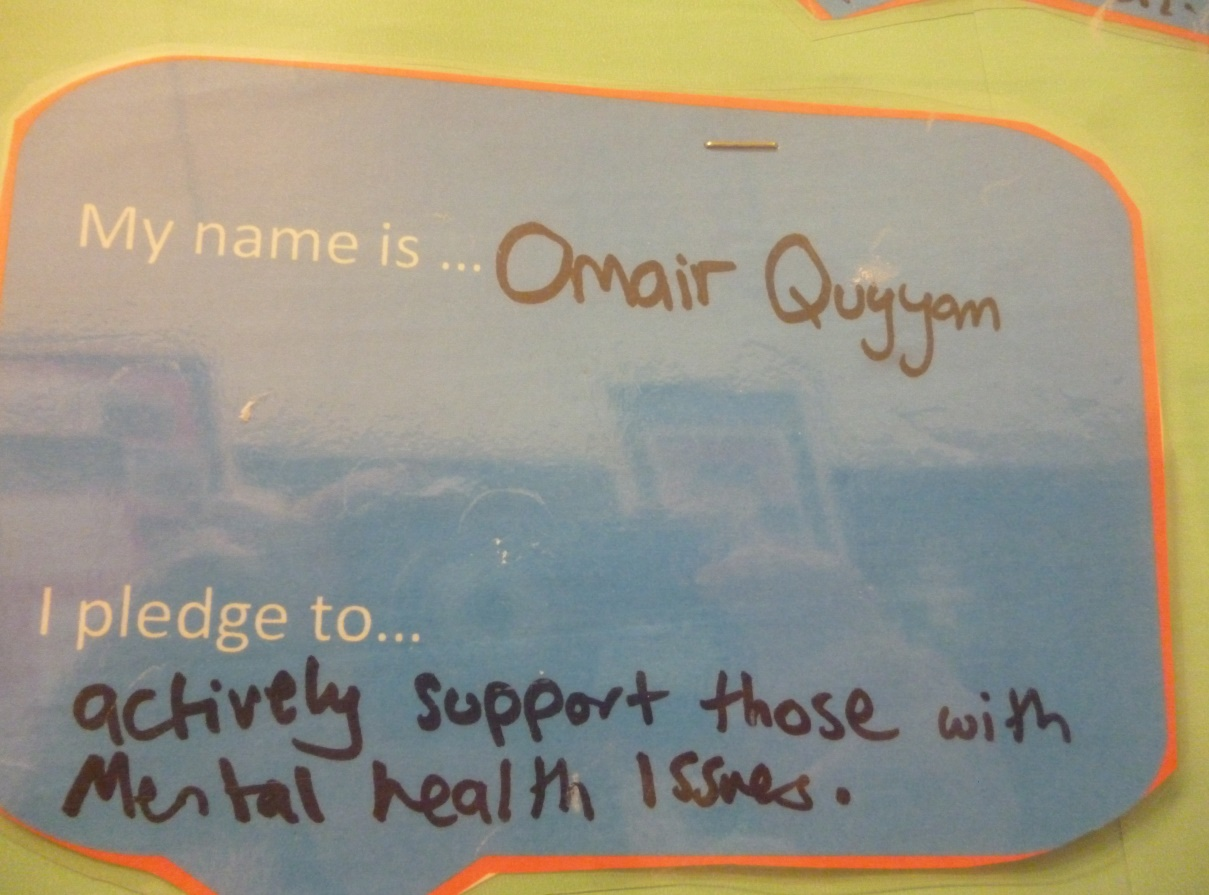 My name is ... Omair Quyyam
I pledge to...
actively support those with
Mental health Issues.